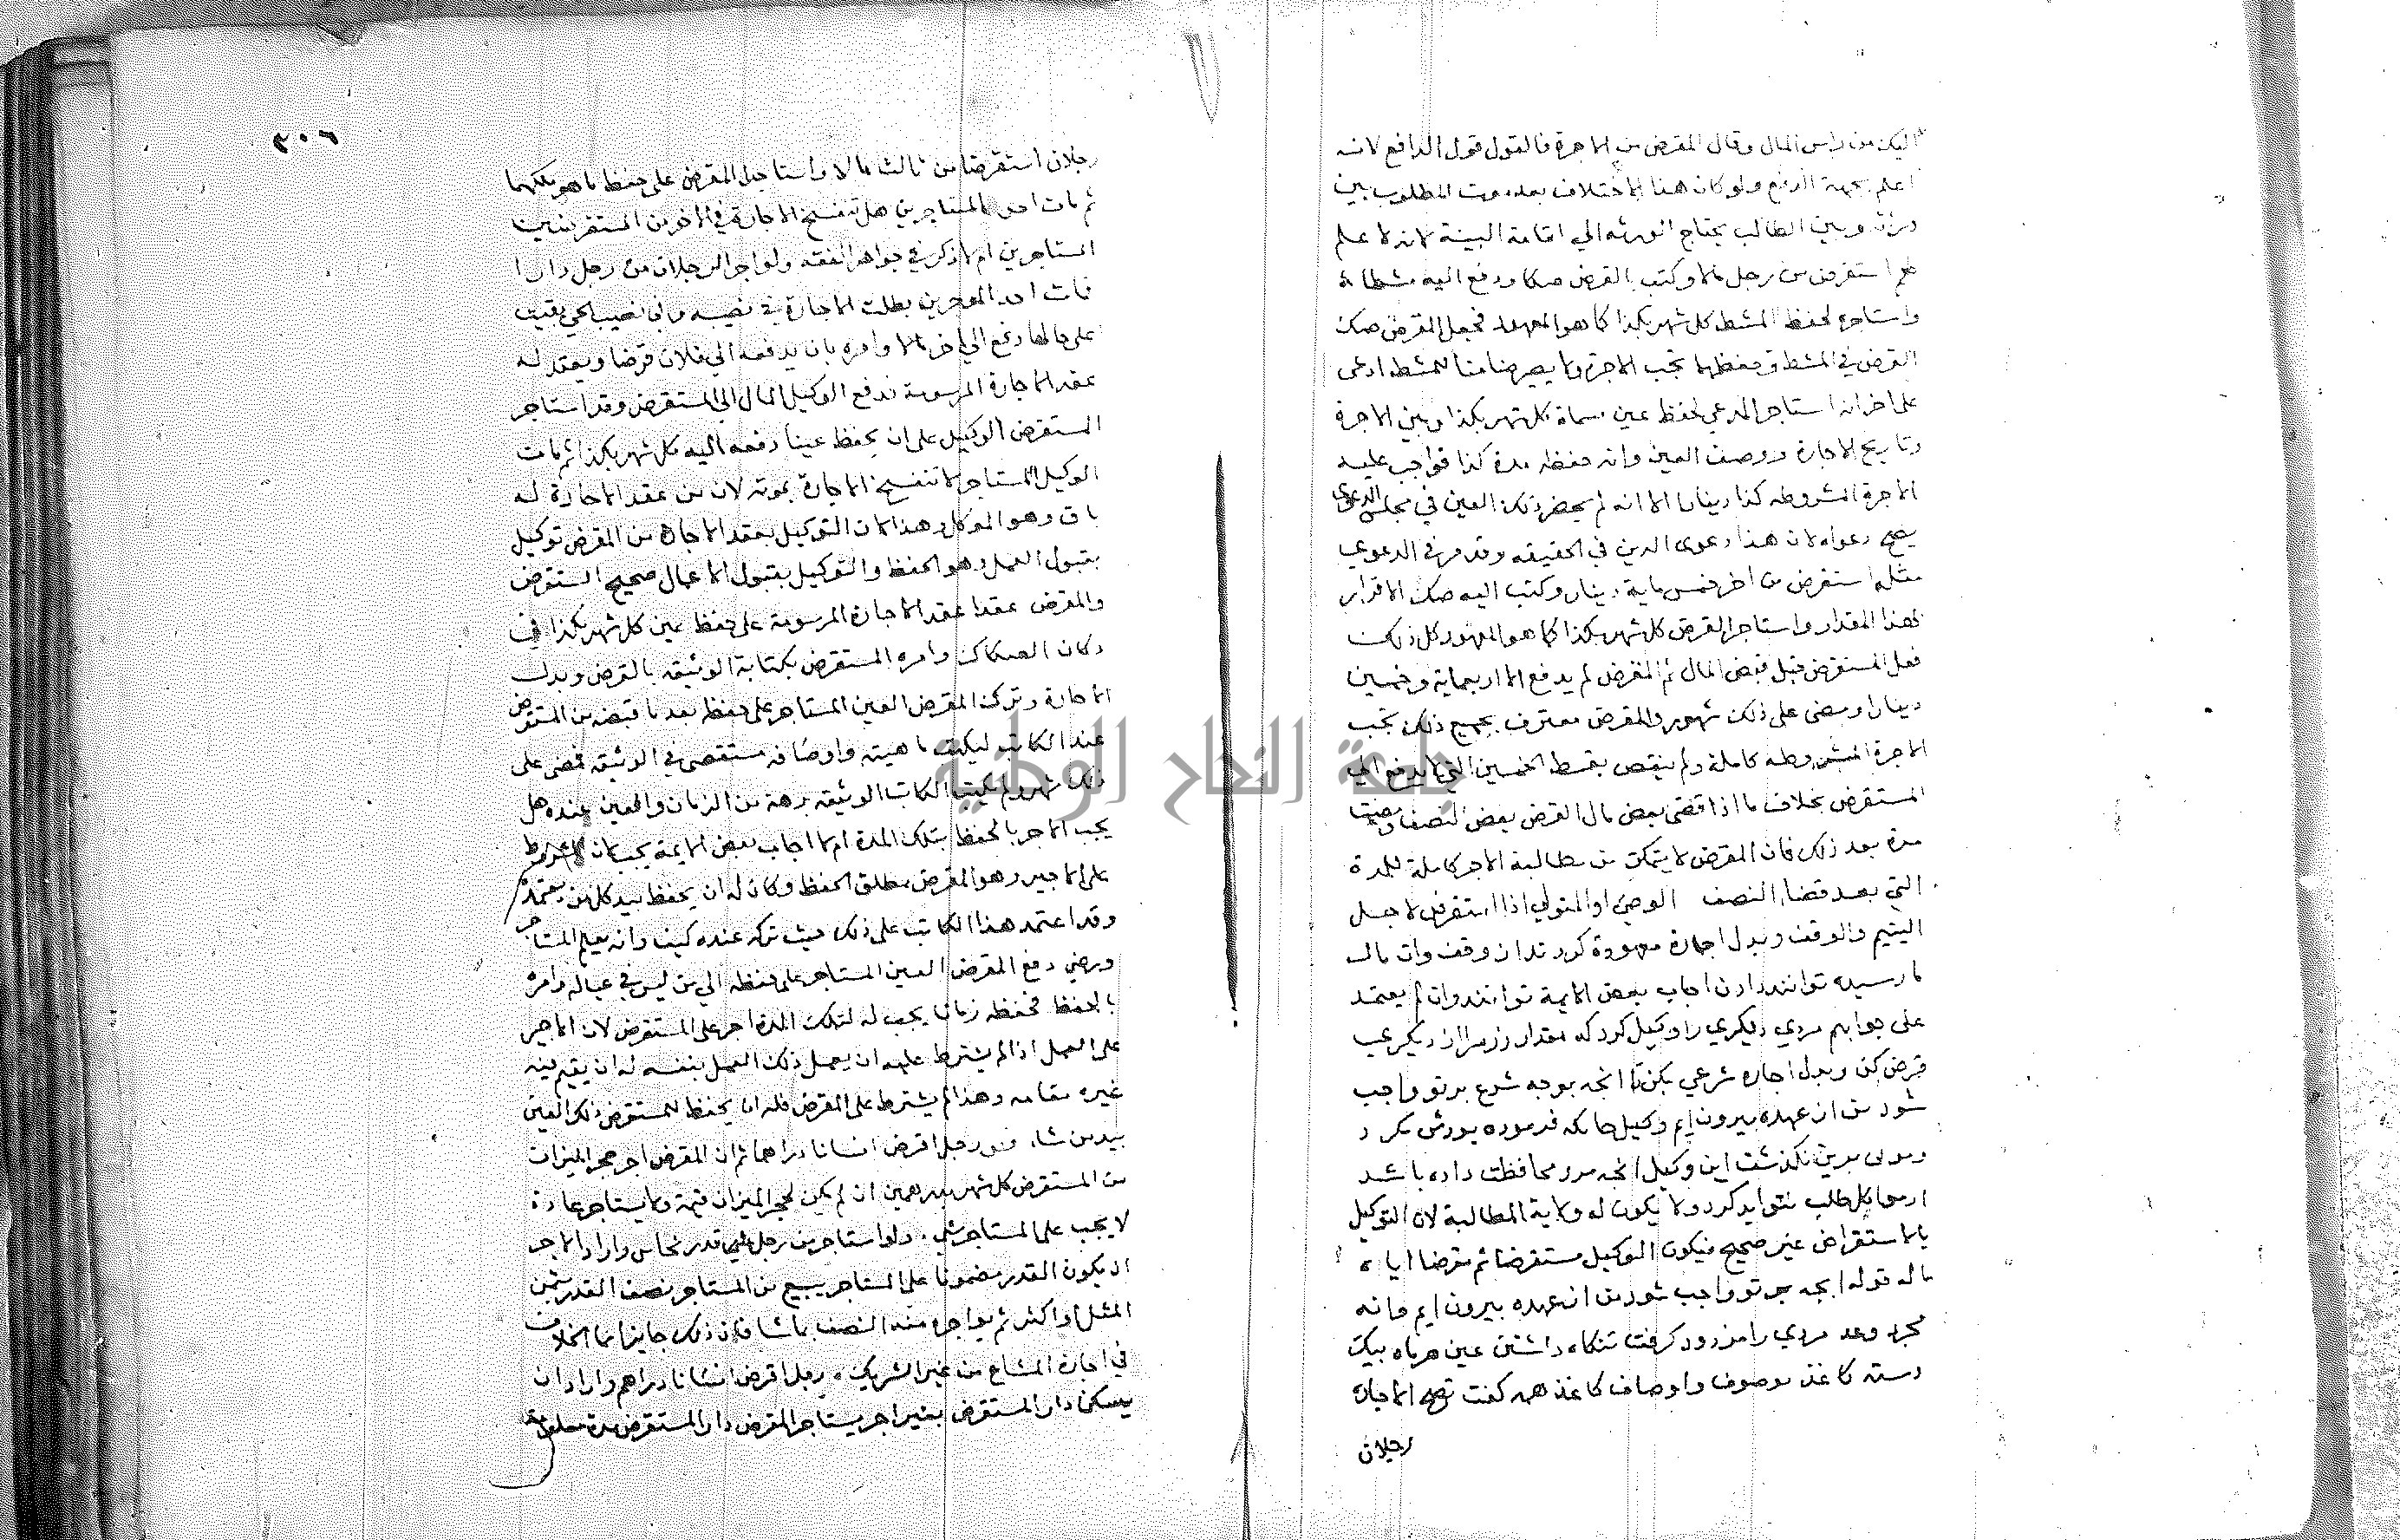 اليك من راس المال وقال المقرض من الاجرة فالقول قول الدافع لانه
اعلم بجهة الدفع ولو كان هذا الاختلاف بعد موت المطلوب بين
ورثته وبين الطالب يحتاج الورثه الي اقامة البينة لانه لا علم
لهم استقرض من رجل مالا وكتب القرض صكا ودفع اليه مشطا
واستاجره لحفظ المشط كل شهر بكذا كما هو المعهود فجعل المقرض صك
القرض في المشط وحفظهما تجب الاجرة ولا يصير ضامنا للمشط ادعى
على اخر انه استاجر المدعي لحفظ عين مسماة كل شهر بكذا وبين الاجرة
وتاريخ الاجارة ووصف العين وانه حفظه مدة كذا فواجب عليه
الاجرة المشروطه كذا دينارا الا انه لم يحضر ذلك العين في مجلس الدعوى
يصح دعواه لان هذا دعوى الدين في الحقيقه وقد مر في الدعوي
مثله استقرض من اخر خمس ماية دينار وكتب اليه صك الاقرار
بهذا المقدار واستاجر المقرض كل شهر بكذا كما هو المعهود كل ذلك
فعل المستقرض قبل قبض المال ثم المقرض لم يدفع الا اربعماية وخمسين
دينارا ومضى على ذلك شهور والمقرض معترف بجميع ذلك تجب
الاجرة المشروطه كاملة ولم ينقص بقسط الخمسين التي لم يدفع الي
المستقرض بخلاف ما اذا قضى بعض مال القرض بعض النصف ومضت
مدة بعد ذلك فان المقرض لا يتمكن من مطالبة الاجر كاملة للمدة
التي بعد قضا النصف الوصي او المتولي اذا استقرض لاجل
اليتيم والوقف وبدل اجارة معهودة كردند ان وقف وان مال
ما رسيده توانند دادن اجاب بعض الايمة توانند وان لم يعتمد
على جوابهم مردي ديكري را وكيل كرد كه مقدار زر مرا از ديكري
قرض كن وبدل اجاره شرعي بكن تا انچه بوجه شرع بر تو واجب
شود من از عهده بيرون ايم وكيل فرموده بودش كرد
ومدتي برين بگذشت اين وكيل انچه مرد محافظت داده باشد
از موكل طلب نتواند كرد ولا يكون له ولاية المطالبة لان التوكيل
بالاستقراض غير صحيح فيكون الوكيل مستقرضا ثم مقرضا اياه
ماله قوله انچه بر تو واجب شود من از عهده بيرون ايم فانه
مجرد وعد مردي را مزدور كرفت نگاه داشتن عين هر ماه بيك
دسته كاغذ موصوف واوصاف كاغذ همه كفت تصح الاجارة
رجلان
٣٠٦
رجلان استقرضا من ثالث مالا واستاجرا المقرض على حفظ ما هو ملكهما
ثم مات احد المستاجرين هل تنفسخ الاجارة في الاخر من المستقرضين
المستاجرين ام لا ذكر في جواهر الفقه ولو اجر الرجلان من رجل دارا
فمات احد الموجرين بطلت الاجارة في نصيبه وفي نصيب الحي بقيت
على حالها دفع الي اخر مالا وامره بان يدفعه الي فلان قرضا ويعقد له
عقد الاجارة المرسومة فدفع الوكيل المال الي المستقرض وقد استاجر
المستقرض الوكيل على ان يحفظ عينا دفعه اليه كل شهر بكذا ثم مات
الوكيل المستاجر لا تنفسخ الاجارة بموته لان من عقد الاجارة له
باق وهو الموكل وهذا لان التوكيل بعقد الاجارة من المقرض توكيل
بقبول العمل وهو الحفظ والتوكيل بقبول الاعمال صحيح المستقرض
والمقرض عقدا عقد الاجارة المرسومة على حفظ عين كل شهر بكذا في
دكان الصكاك وامره المستقرض بكتابة الوثيقه بالقرض وبدل
الاجارة وترك المقرض العين المستاجر على حفظه بعد ما قبضه من المستقرض
عند الكاتب ليكتب ماهيته واوصافه مستقصى في الوثيقه فمضى على
ذلك شهر ولم يكتب الكاتب الوثيقه برهة من الزمان والعين عنده هل
يجب الاجر بالحفظ بتلك المدة ام لا اجاب بعض الايمة يجب لان المشروط
على الاجير وهو المقرض مطلق الحفظ وكان له ان يحفظ بيد كل من يعتمده
وقد اعتمد هذا الكاتب على ذلك حيث تركه عنده كيف وانه يعلم المستاجر
ورضي دفع المقرض العين المستاجر على حفظه الي من ليس في عياله وامره
بالحفظ فحفظه زمانا يجب له لتلك المدة اجر على المستقرض لان الاجير
على العمل اذا لم يشترط عليه ان يعمل ذلك العمل بنفسه له ان يقيم فيه
غيره مقامه وهذا لم يشترط على المقرض فله ان يحفظ للمستقرض ذلك العين
بيد من شاء رجل اقرض انسانا دراهما ثم ان المقرض اجر حجر الميزان
من المستقرض كل شهر بدرهمين ان لم يكن لحجر الميزان قيمة ولا يستاجر عادة
لا يجب على المستاجر شي ولو استاجر من رجل قدر نحاس واراد الاجر
ان يكون القدر مضمونا على المستاجر يبيع من المستاجر نصف القدر بثمن
المثل او اكثر ثم يواجره منه النصف بما شا فان ذلك جايز انما الخلاف
في اجارة المشاع من غير الشريك رجل اقرض انسانا دراهم واراد ان
يسكن دار المستقرض بغير اجر يستاجر المقرض دار المستقرض مدة معلومة
جامعة النجاح الوطنية